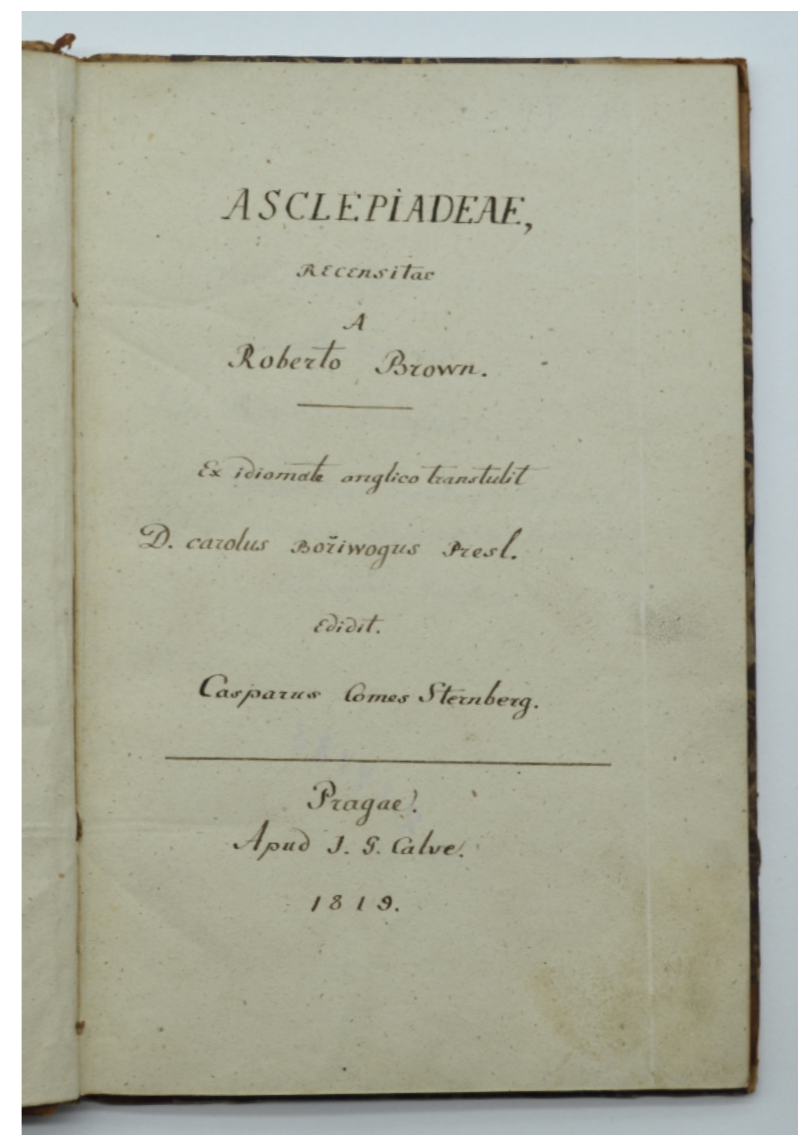 ASCLEPIADEAE,
RECENSITAE
A
Roberto Brown.
Ex idiomate anglico transtulit
D. carolus Bořiwogus Presl.
Edidit.
Casparus Comes Sternberg.
Pragae.
Apud J. G. Calve.
1819.